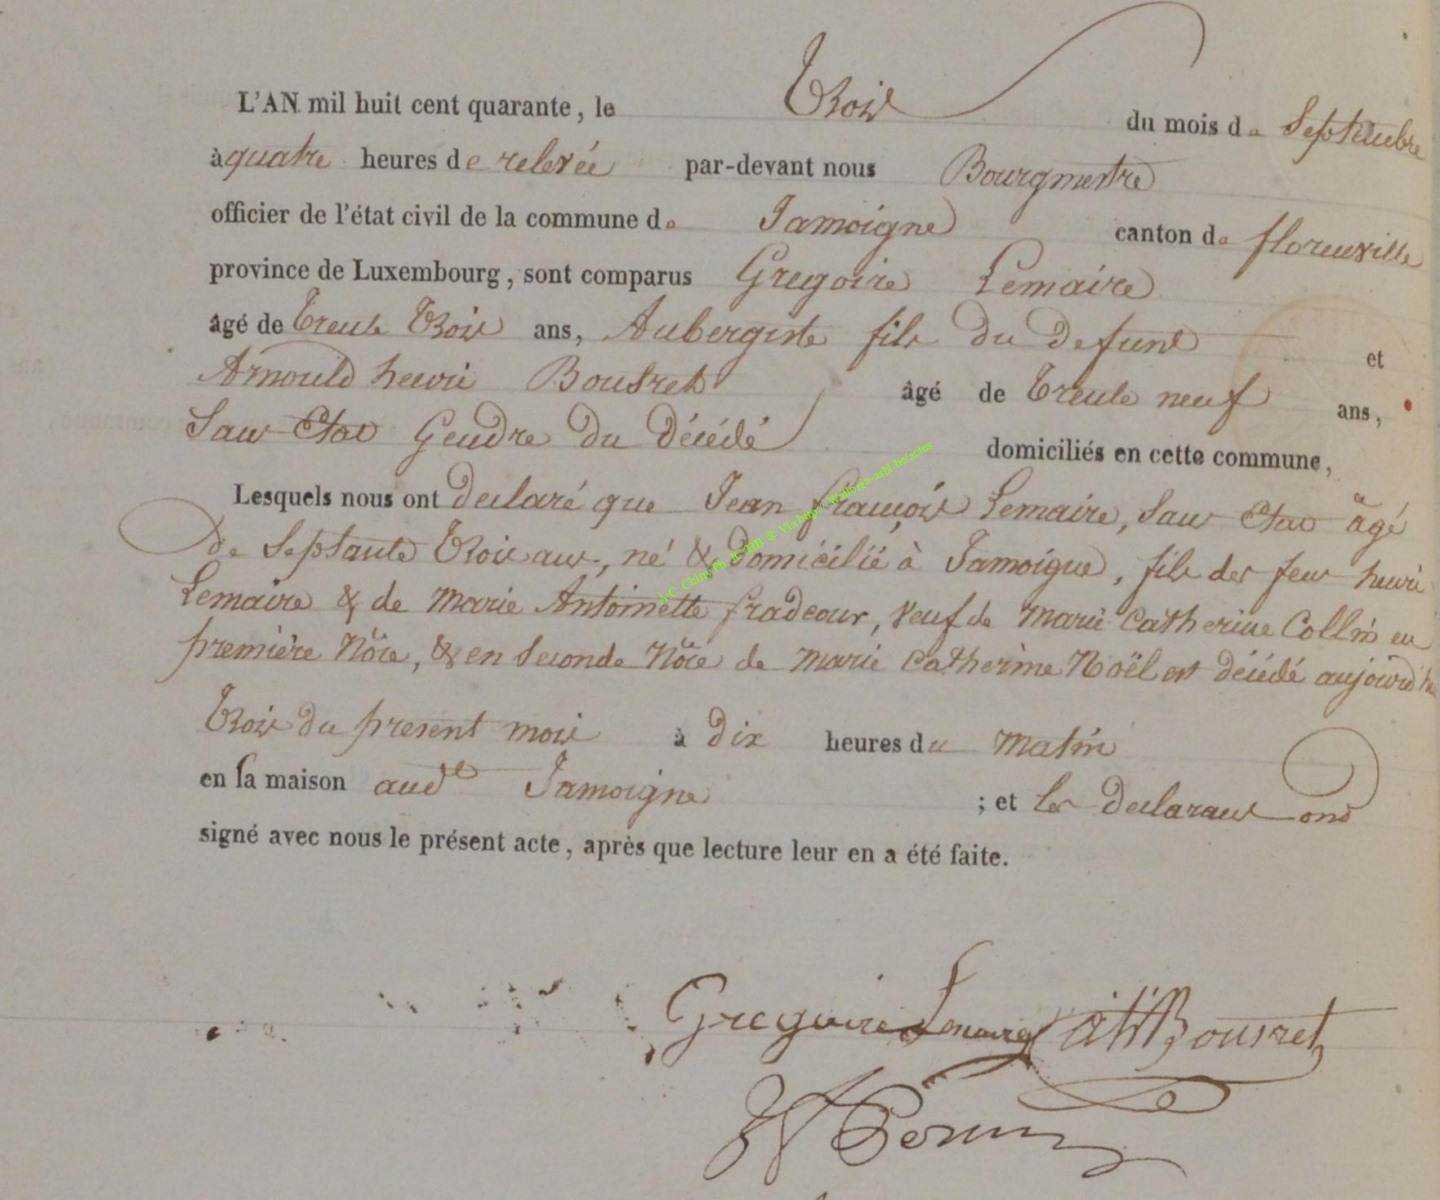 L'AN mil huit cent quarante, le Trois du mois de Septembre
à quatre heures de relevée par-devant nous Bourgmestre
officier de l'état civil de la commune de Jamoigne canton de florenville
province de Luxembourg, sont comparus Gregoire Lemaire
âgé de Trente Trois ans, Aubergiste fils du Defunt et
Arnould henri Bousret âgé de Trente neuf ans,
Sans Etat Gendre du Décédé domiciliés en cette commune,
Lesquels nous ont declaré que Jean françois Lemaire, Sans Etat âgé
De Septante Trois ans, né & Domicilié à Jamoigne, fils des feus henri
Lemaire & de Marie Antoinette fradcour, Veuf de Marie Catherine Collin en
première Nôce, & en Seconde Nôce de Marie Catherine Noël est décédé aujourd'hui
Trois du présent mois à dix heures du matin
en sa maison aud.t Jamoigne ; et les Declarans ont
signé avec nous le présent acte, après que lecture leur en a été faite.
Gregoire Lemaire AH Bousret